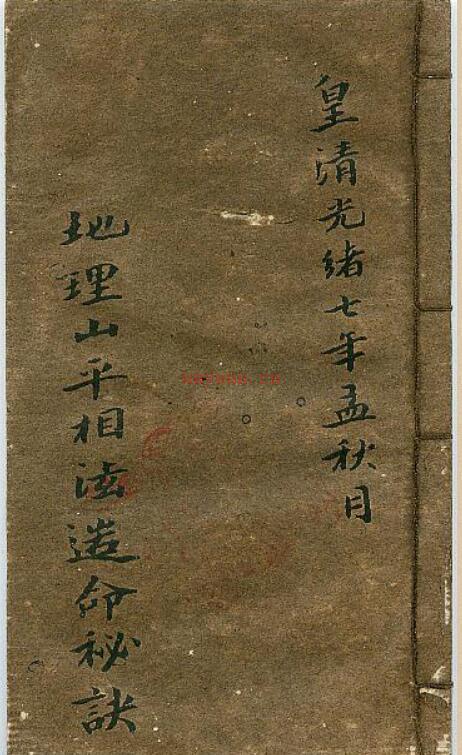 皇清光绪七年孟秋月
地理山平相法造命秘訣